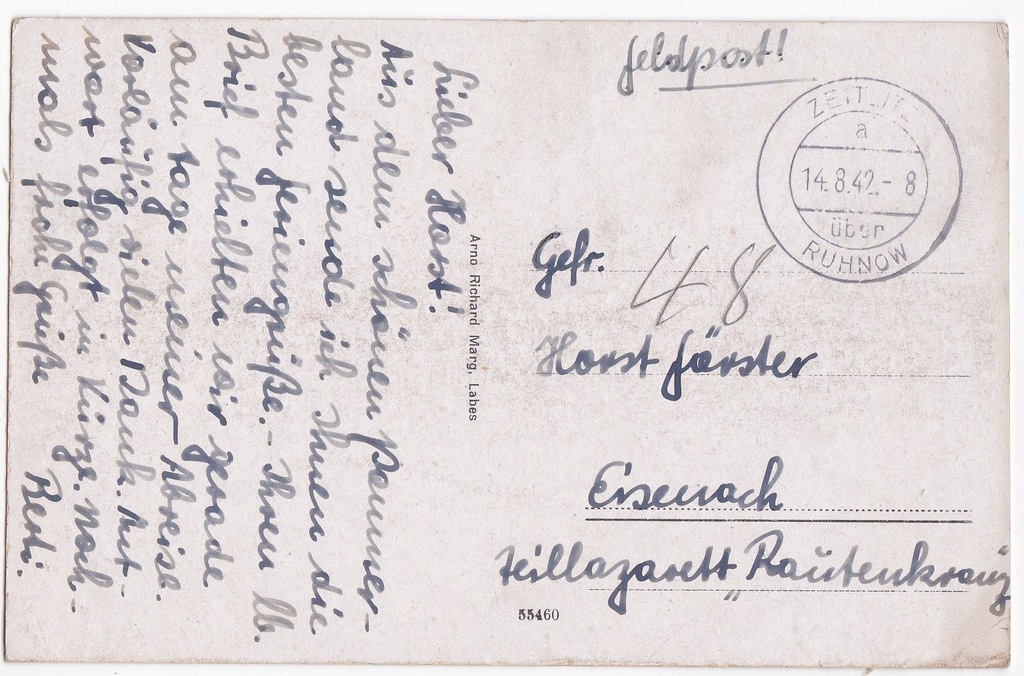 Lieber Horst!
Aus dem schönen Pommer-
land sende ich Ihnen die
besten Feriengrüße. - Ihren lb.
Brief erhielten wir gerade
am Tage meiner Abreise.
Vorläufig vielen Dank. Ant-
wort erfolgt in Kürze. Noch-
mals frohe Grüße
Arno Richard Marg, Labes
Feldpost!
ZEITLITZ
a
14.8.42.-8
über
RUHNOW
Gefr.
48
Horst Förster
Eisenach
Teillazarett „Rautenkranz
55460